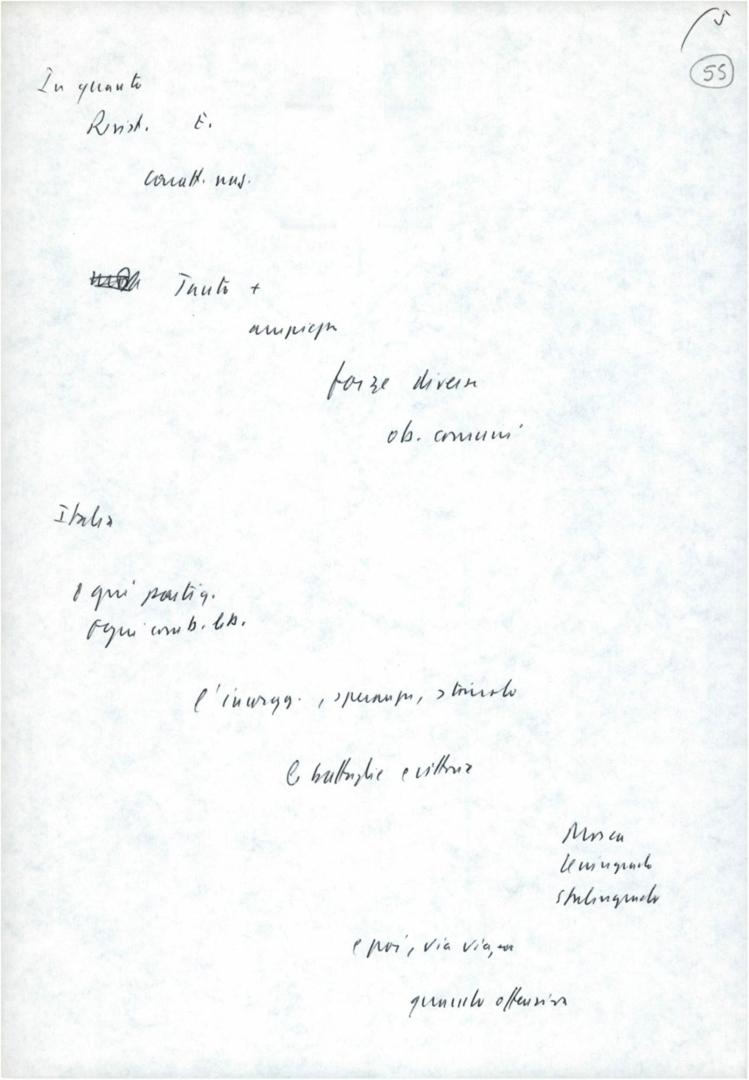 5
55
In quanto
Resist. E.
caratt. naz.
Tanto +
ampiezza
forze diverse
ob. comuni
Italia
Ogni partig.
Ogni comb. lib.
l'incoragg., speranza, stimolo
le battaglie e vittorie
Mosca
Leningrado
Stalingrado
e poi, via via,
grande offensiva